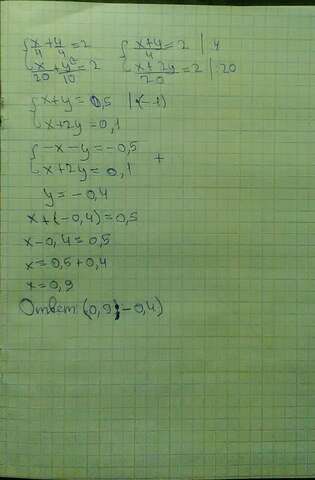 {x/4 + y/4 = 2 {(x+y)/4 = 2 | 4
{x/20 + y/10 = 2 {(x+2y)/20 = 2 | 20
{x+y = 0,5 |(-1)
{x+2y = 0,1
{-x-y = -0,5
{x+2y = 0,1 +
y = -0,4
x+(-0,4) = 0,5
x-0,4 = 0,5
x = 0,5+0,4
x = 0,9
Ответ: (0,9; -0,4)